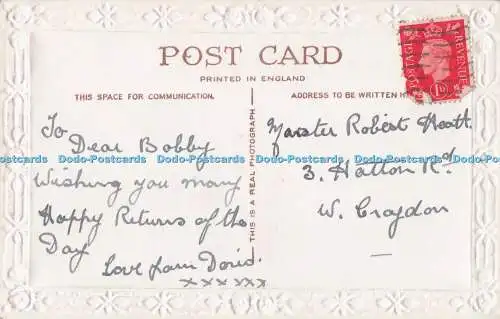 POST CARD
PRINTED IN ENGLAND
THIS SPACE FOR COMMUNICATION.
ADDRESS TO BE WRITTEN H
To
Dear Bobby
Wishing you many
Happy Returns of the
Day
Love from Doris.
xxxxxx
THIS IS A REAL PHOTOGRAPH
Master Robert Heath.
3. Halton Rd
W. Croydon
REVENUE
1D
Dodo-Postcards Dodo-Postcards Dodo-Postcards Dodo-Postcards Dodo-Postcards